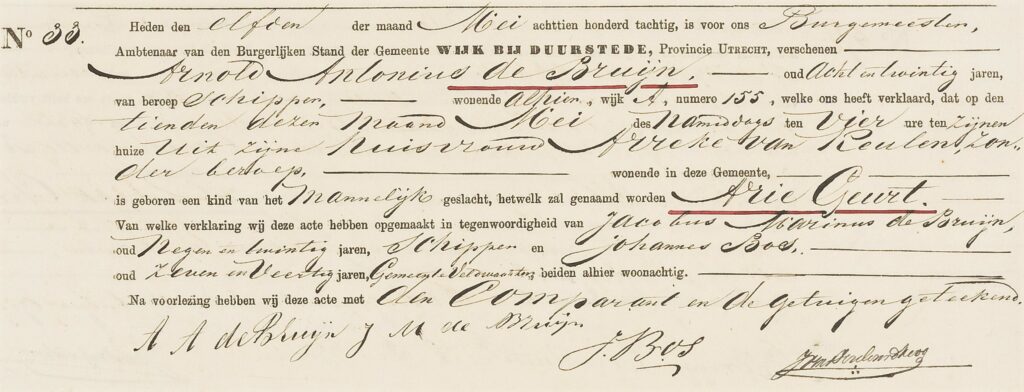 No 33. Heden den Elfden der maand Mei achttien honderd tachtig, is voor ons Burgemeester,
Ambtenaar van den Burgerlijken Stand der Gemeente WIJK BIJ DUURSTEDE, Provincie UTRECHT, verschenen
Arnold Antonius de Bruijn, oud Acht en twintig jaren,
van beroep Schipper, wonende alhier, wijk A, numero 155, welke ons heeft verklaard, dat op den
tienden dezer maand Mei des Namiddags ten Vier ure ten zijnen
huize Uit zijne huisvrouw Arreke van Keulen, zon-
der beroep, wonende in deze Gemeente,
is geboren een kind van het Mannelijk geslacht, hetwelk zal genaamd worden Arie Geurt.
Van welke verklaring wij deze acte hebben opgemaakt in tegenwoordigheid van Jacobus Marinus de Bruijn,
oud Negen en twintig jaren, Schipper en Johannes Bos,
oud Zeven en Veertig jaren, Gemeente Veldwachter, beiden alhier woonachtig.
Na voorlezing hebben wij deze acte met den Comparant en de getuigen geteekend.
A A de Bruijn J M de Bruijn
J. Bos